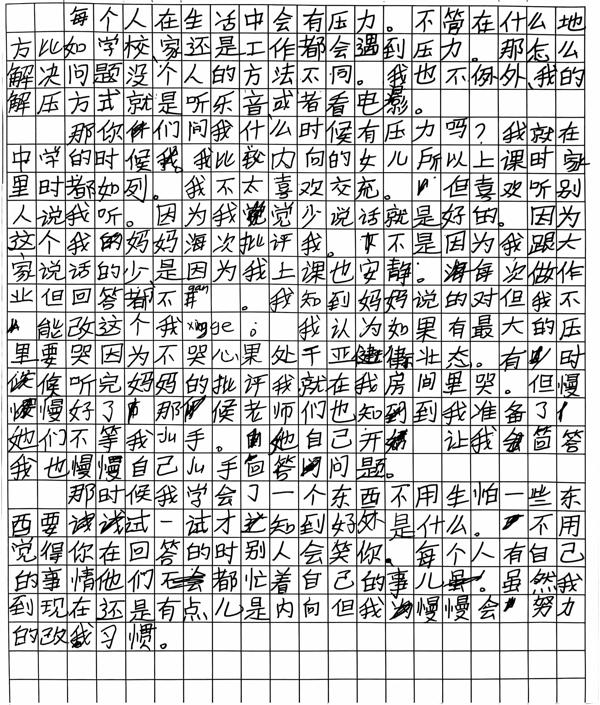 每个人在生活中会有压力。不管在什么地
方比如学校、家还是工作都会遇到压力。那怎么
解决问题没个人的方法不同。我也不例外、我的
解压方式就是听乐音或者看电影。
那你们问我什么时候有压力吗？我就在
中学的时候我比较内向的女儿所以上课时家
里时都如列。我不太喜欢交充。但喜欢听别
人说我听。因为我觉少说话就是好的。因为
这个我的妈妈海次批评我。不是因为我跟大
家说话的少是因为我上课也安静。每次做作
业但回答都不gan。我知到妈妈说的对但我不
能改这个我xingge。我认为如果有最大的压
里要哭因为不哭心果处于亚健康壮态。有时
候听完妈妈的批评我就在我房间里哭。但慢
慢好了那候老师们也知到到我准备了
她们不等我小手。她自己开始让我会回答
我也慢慢自己小手回答问题。
那时候我学会了一个东西不用生怕一些东
西要试一试才知到好外是什么。不用
觉得你在回答的时别人会笑你。每个人有自己
的事情他们都忙着自己的事儿。虽然我
到现在还是有点儿是内向但我慢慢会努力
的改我习惯。